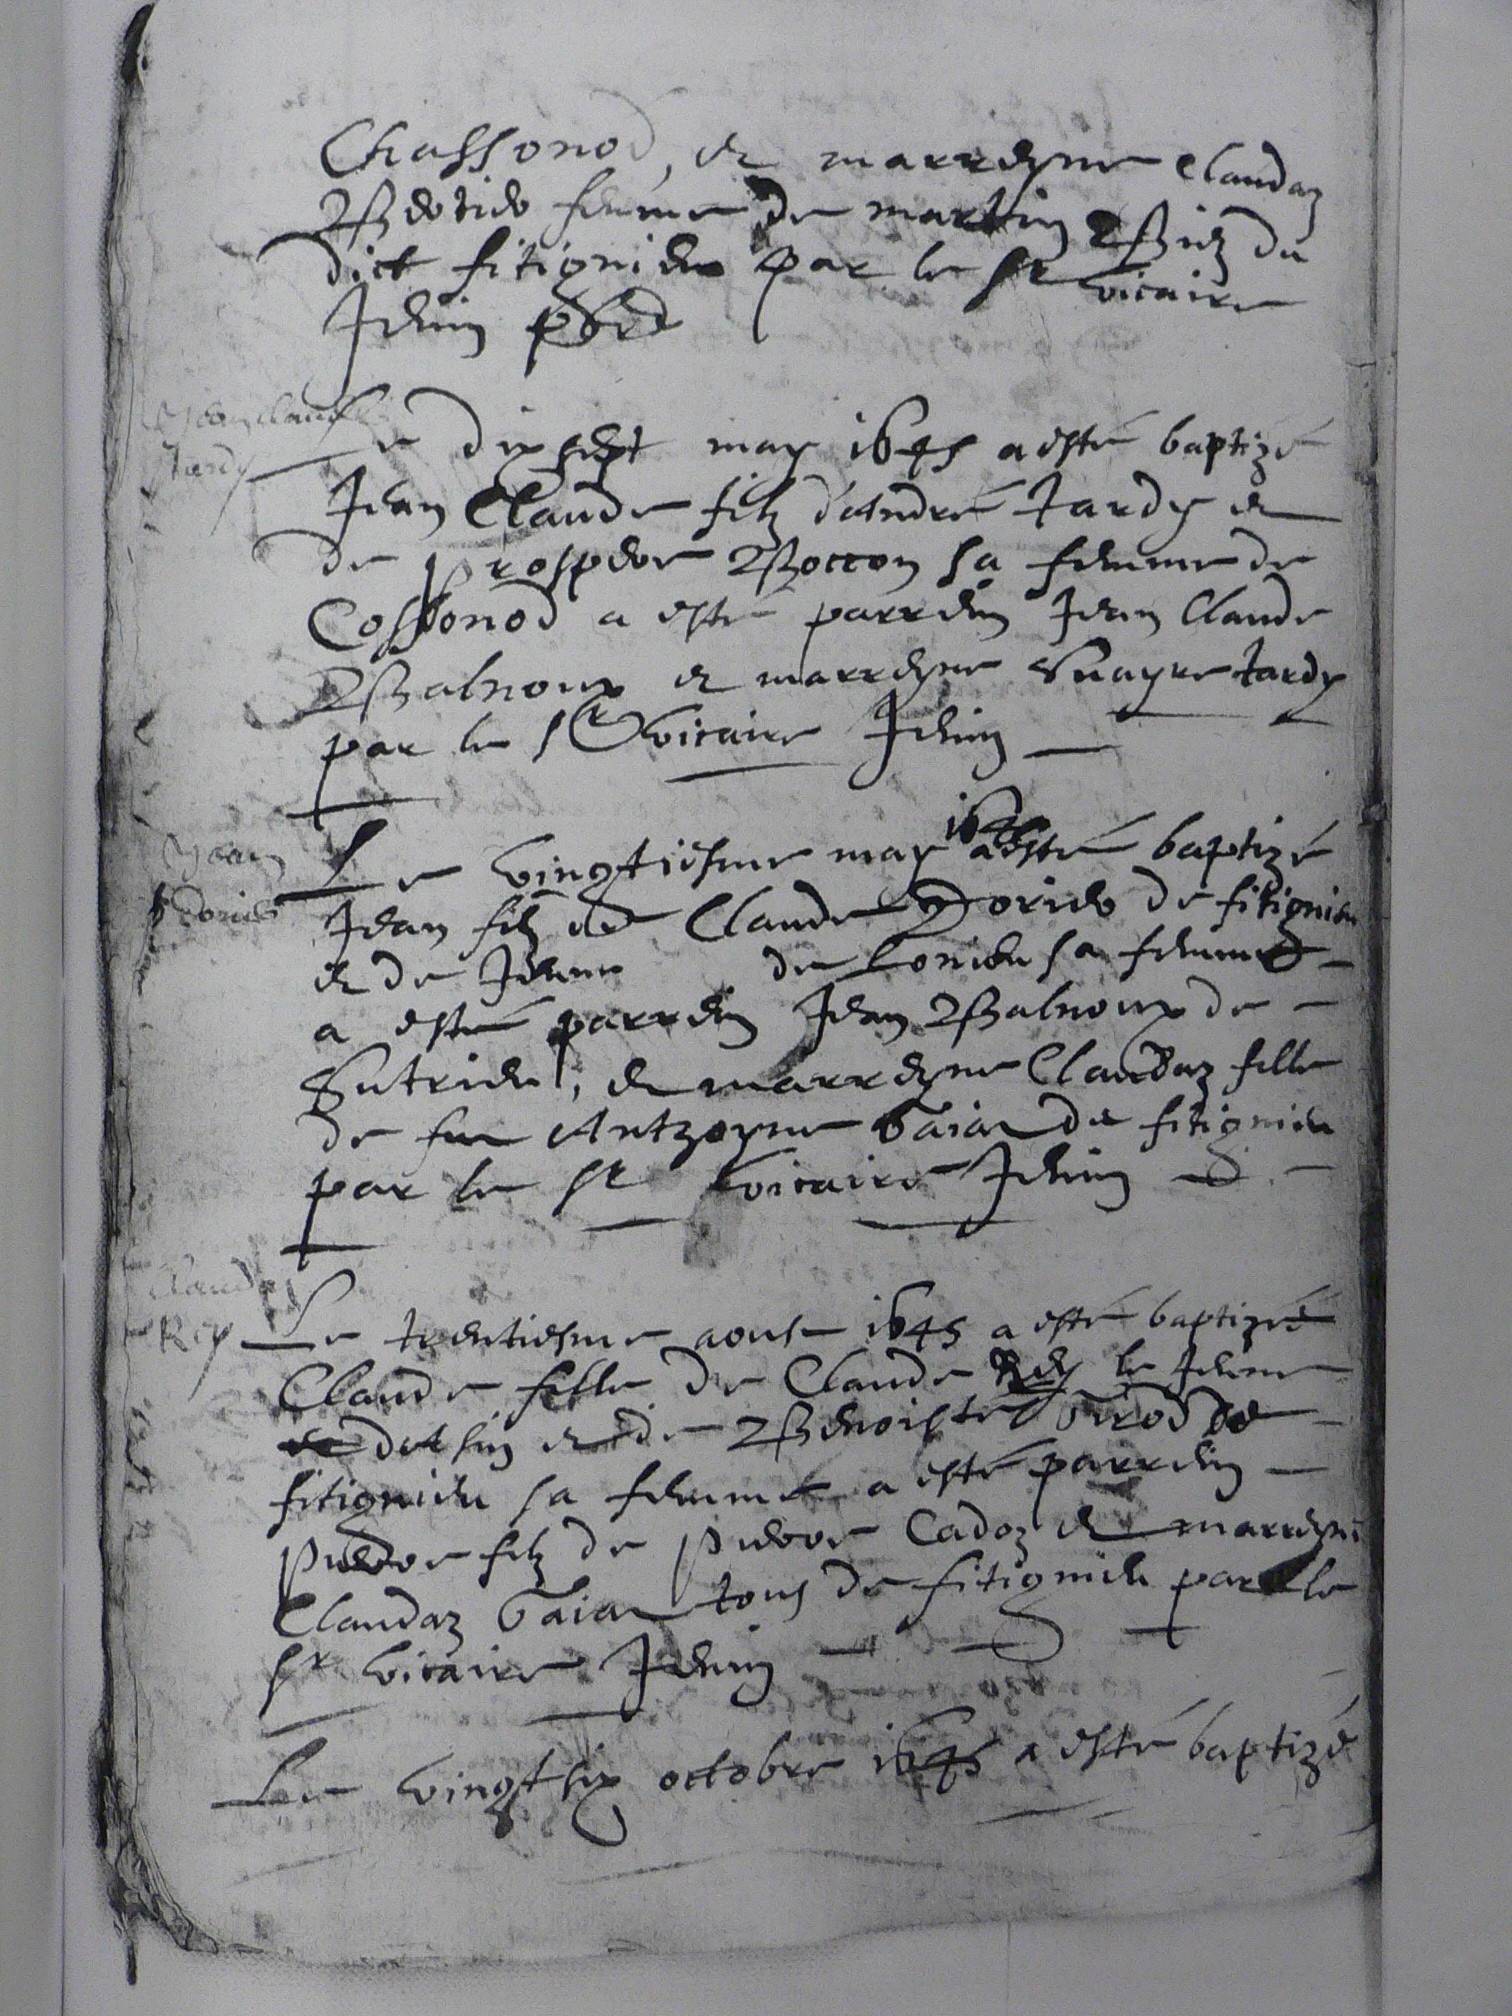 Chassonod, et marreyne Claudaz
Bertier femme de martin Biez du
dict fitignieu par le Sr vicaire
Jenin
Jean Claude
Tardy
Le dix sept may 1645 a esté baptizé
Jean Claude filz d'André Tardy et
de prospere Boccon sa femme de
Cossonod a esté parrein Jean Claude
Balnoux et marreyne Tardy
par le Sr vicaire Jenin
Jean
Dorier
Le vingtiesme may 1645 a esté baptizé
Jean filz de Claude Dorier de fitignieu
et de Jeanne de Lonieu sa femme
a esté parrein Jean Balnoux de
Sutrieu, et marreyne Claudaz fille
de feu Antzoyne de fitignieu
par le Sr vicaire Jenin
Claude
Rey
Le trentiesme aoust 1645 a esté baptizée
Claude fille de Claude Rey le Jeune
et de Benoiste de
fitignieu sa femme a esté parrein
pierre filz de pierre Cadoz et marreyne
Claudaz tous de fitignieu par le
Sr vicaire Jenin
Le vingt six octobre 1645 a esté baptizé